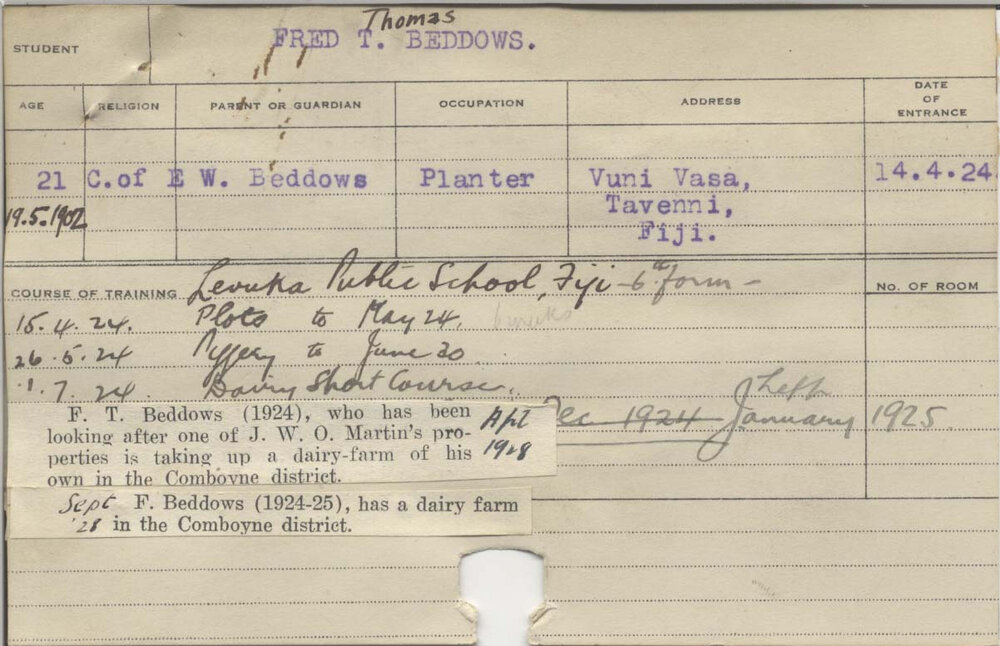 Thomas
STUDENT FRED T. BEDDOWS.
AGE RELIGION PARENT OR GUARDIAN OCCUPATION ADDRESS DATE OF ENTRANCE
21 C.of E W. Beddows Planter Vuni Vasa, 14.4.24
19.5.1902 Tavenni,
Fiji.
COURSE OF TRAINING Levuka Public School, Fiji - 6th form - NO. OF ROOM
15.4.24. Plots to May 24.
26.5.24 Piggery to June 30
1.7.24. Dairy Short Course.
Left
Dec 1924 January 1925.
F. T. Beddows (1924), who has been
looking after one of J. W. O. Martin's pro-
perties is taking up a dairy-farm of his
own in the Comboyne district.
Apl
1928
Sept F. Beddows (1924-25), has a dairy farm
'28 in the Comboyne district.